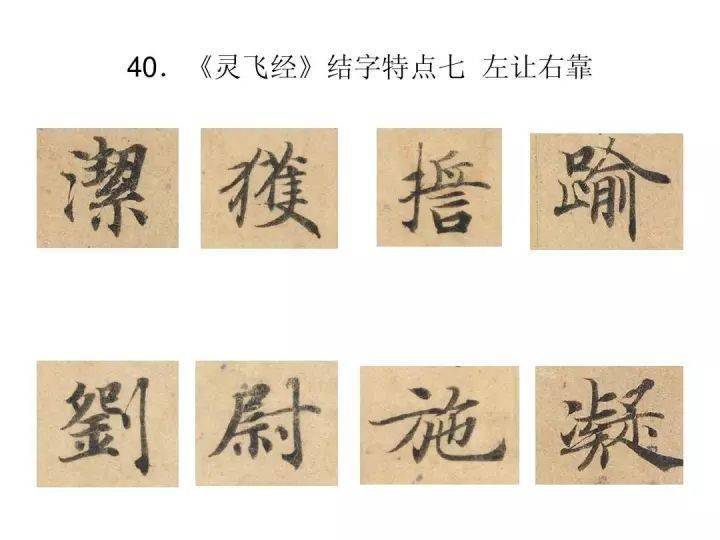 40. 《灵飞经》结字特点七 左让右靠
潔 獲 誓 踰
劉 尉 施 凝